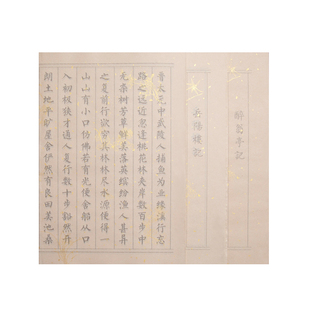 醉翁亭記
岳陽樓記
晋太元中武陵人捕鱼为业缘溪行忘
路之远近忽逢桃花林夹岸数百步中
无杂树芳草鲜美落英缤纷渔人甚异
之复前行欲穷其林林尽水源便得一
山山有小口仿佛若有光便舍船从口
入初极狭才通人复行数十步豁然开
朗土地平旷屋舍俨然有良田美池桑